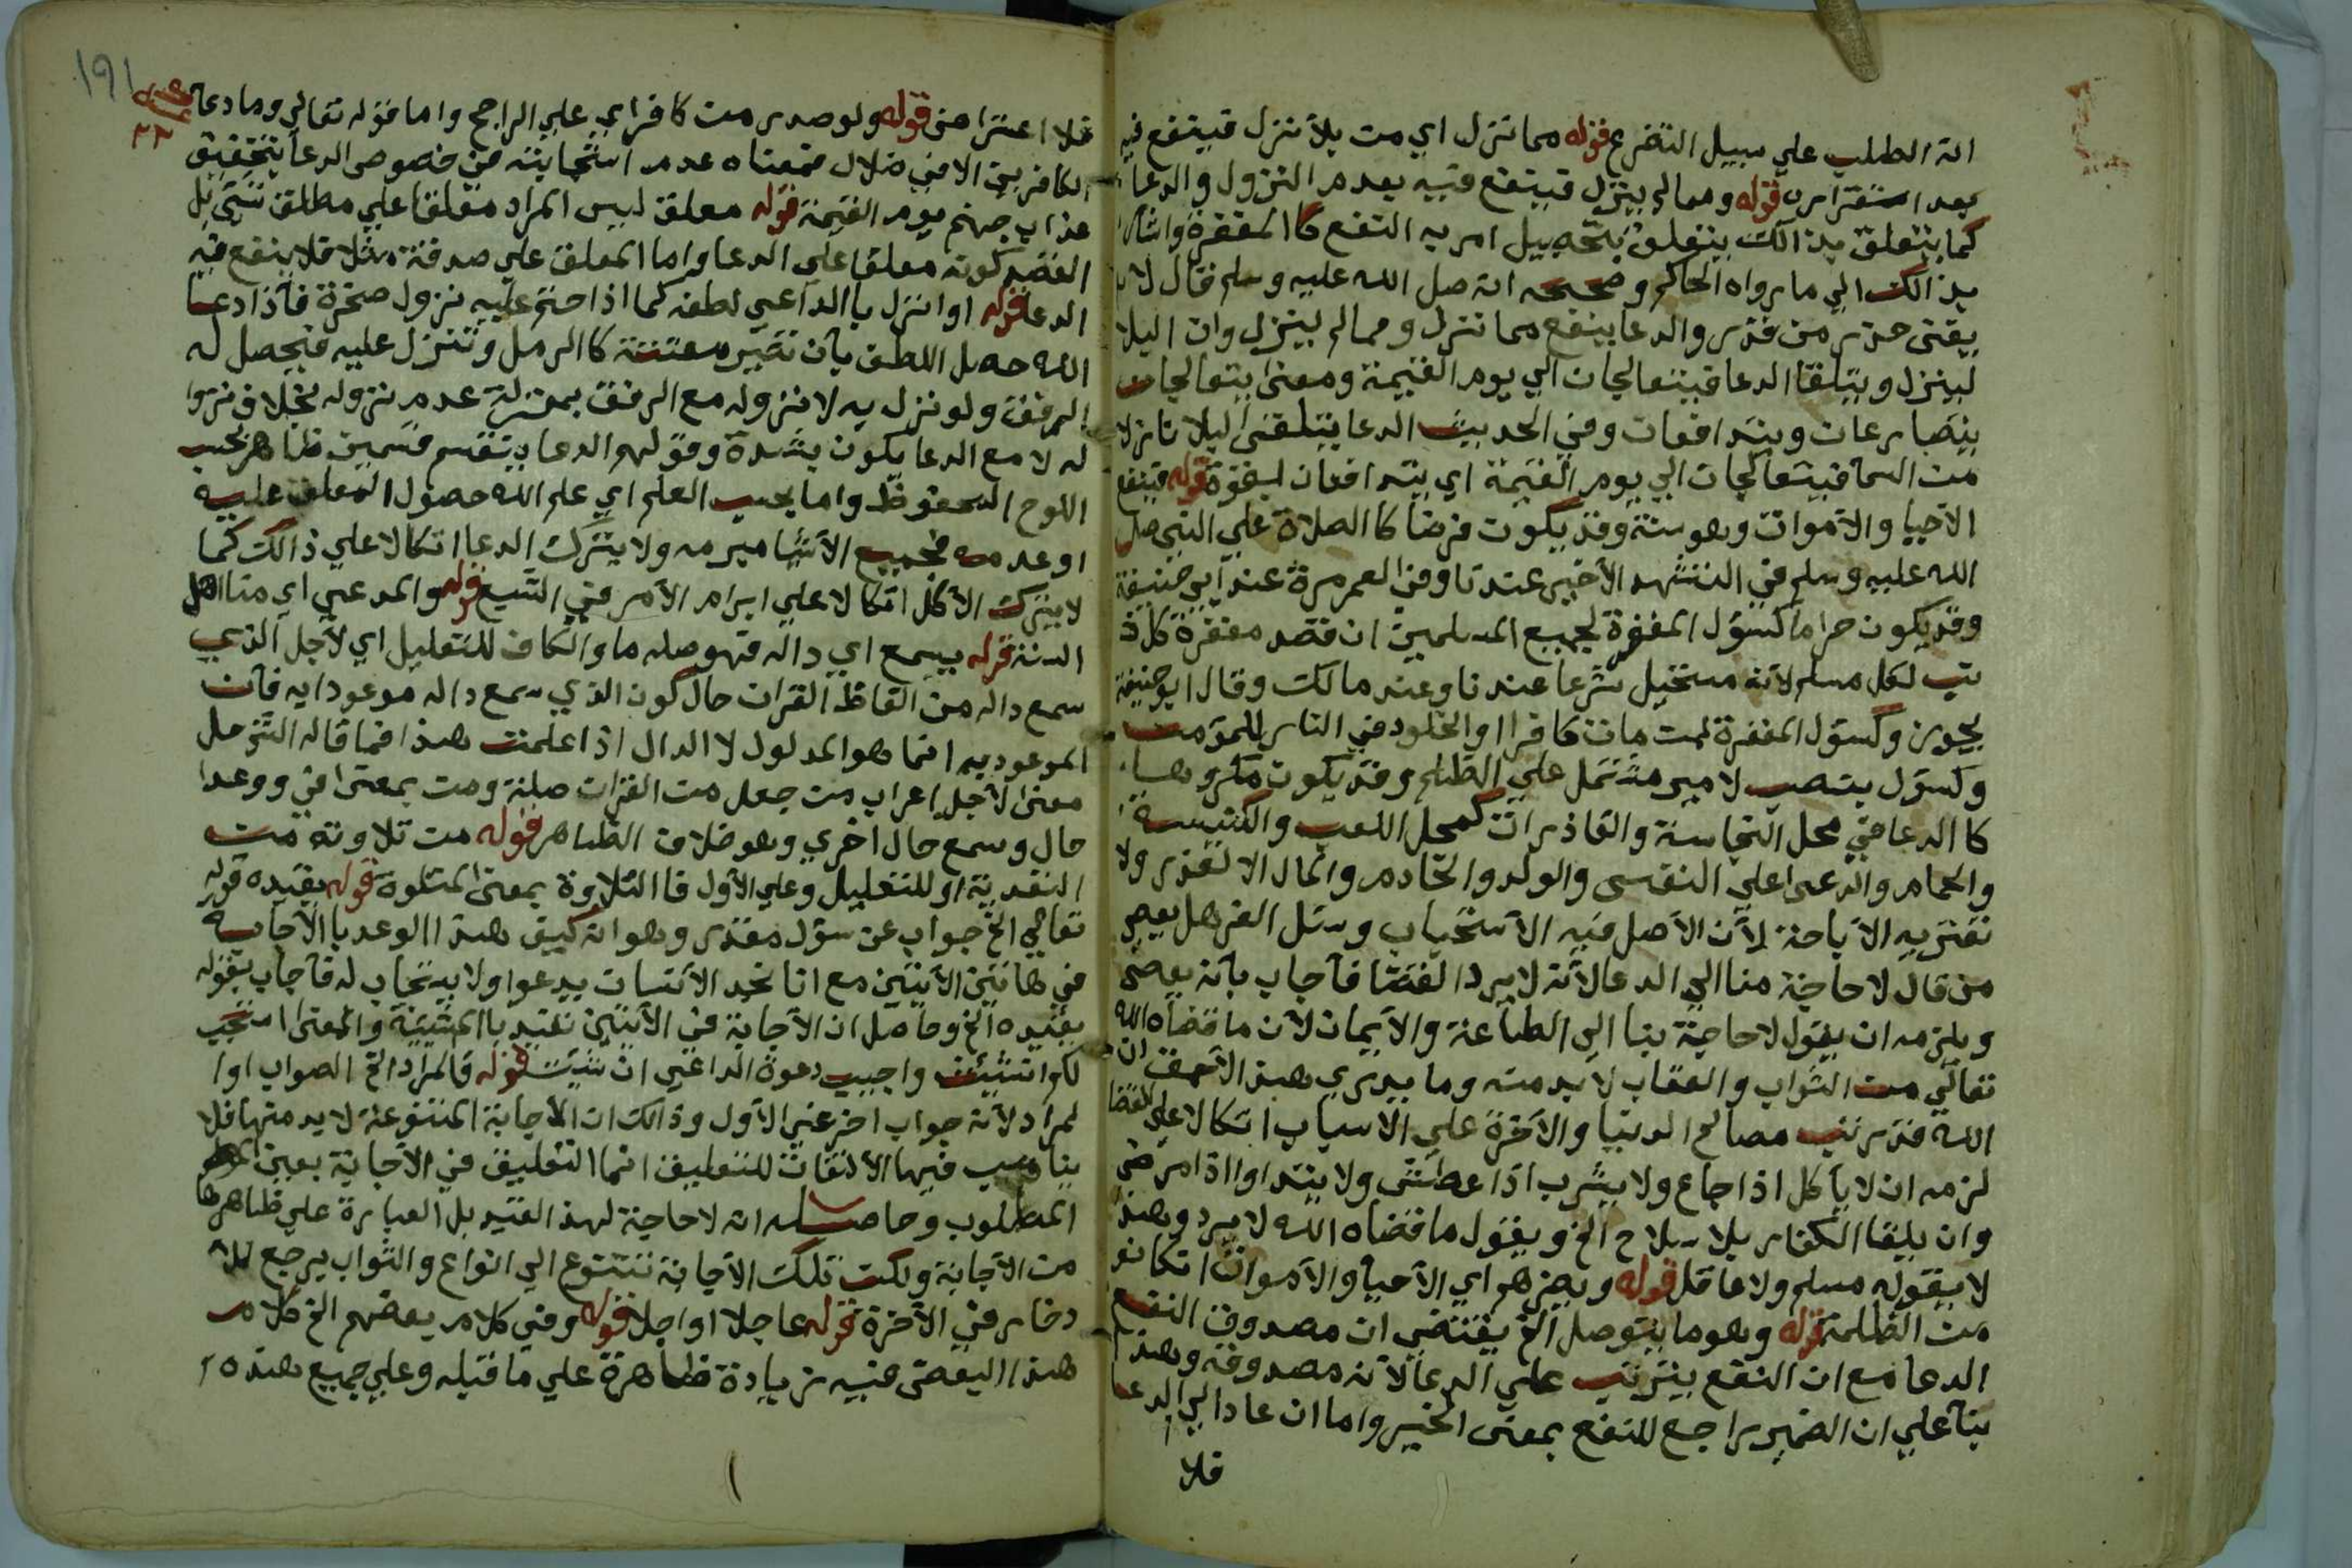 انه الطلب علي سبيل التضرع قوله مما نزل اي من بلا نزل فينفع فيه
بعد استقراره قوله ومما لم ينزل فينفع فيه بعدم النزول والدعا
كما يتعلق بذالك يتعلق بتحصيل امر به النفع كا المغفرة واشار
بذالك الي ما رواه الحاكم وصححه انه صل الله عليه وسلم قال لا
يغني حذر من قدر والدعا ينفع مما نزل ومما لم ينزل وان البلا
لينزل ويتلقا الدعا فيتعالجان الي يوم القيمة ومعنا يتعالجان
يتصارعان ويتدافعان وفي الحديث الدعا يتلقى البلا نازلا
من السما فيتعالجان الي يوم القيمة اي يتدافعان بقوة قوله فينفع
الاحيا والاموات وهو سنة وقد يكون فرضا كا الصلاة علي النبي صل
الله عليه وسلم في التشهد الاخير عندنا وفي العمر مرة عند ابي حنيفة
وقد يكون حراما كسؤل المغفرة لجميع المسلمين ان قصد مغفرة كل ذ
نب لكل مسلم لانه مستحيل شرعا عندنا وعند مالك وقال ابو حنيفة
يجوز وكسؤل المغفرة لمن مات كافرا او الخلود في النار للمؤمن
وكسؤل بنصب لامير مشتمل علي الظلم وقد يكون مكروها
كا الدعا في محل النجاسة والقاذرات كمحل اللعب والكنيسة
والحمام والدعا علي النفس والولد والخادم والمال الا لعذر ولا
تعتريه الاباحة لان الاصل فيه الاستحباب وسئل العز هل يعصي
من قال لا حاجة منا الي الدعا لانه لا يرد القضا فاجاب بانه يعصي
ويلزمه ان يقول لا حاجة بنا الي الطاعة والايمان لان ما قضاه الله
تعالي من الثواب والعقاب لا بد منه وما يدري هذا الاحمق ان
الله قد رتب مصالح الدنيا والاخرة علي الاسباب اتكالا علي القضا
لزمه ان لا ياكل اذا جاع ولا يشرب اذا عطش ولا يتداوا اذا مرض
وان يلقا الكفار بلا سلاح الخ ويقول ما قضاه الله لا يرد وهذا
لا يقوله مسلم ولا عاقل قوله ويضرهم اي الاحيا والاموات ان كانو
من الظلمة قوله وهو ما يتوصل الخ يقتضي ان مصدوق النفع
الدعا مع ان النفع يترتب علي الدعا لا انه مصدوقه وهذا
بنا علي ان الضمير راجع للنفع بمعنى الخير واما ان عاد الي الدعا
فلا
١٩١
فلا اعتراض قوله ولو صدر من كافر اي علي الراجح واما قوله تعالي وما دعا
الكافرين الا في ضلال فمعناه عدم استجابته في خصوص الدعا بتخفيف
عذاب جهنم يوم القيمة قوله معلق ليس المراد معلقا علي مطلق شي بل
القصد كونه معلقا علي الدعا واما المعلق علي صدقة مثلا فلا ينفع فيه
الدعا قوله او انزل با الداعي لطفه كما اذا حتم عليه نزول صخرة فاذا دعا
الله حصل اللطف بان تصير متفتتة كا الرمل وتنزل عليه فيحصل له
الرفق ولو نزل به لا نزوله مع الرفق بمنزلة عدم نزوله بخلاف نزوا
له لا مع الدعا يكون بشدة وقولهم الدعا ينقسم قسمين ظاهر بحسب
اللوح المحفوظ واما بحسب العلم اي علم الله حصول المعلق عليه
او عدمه فجميع الاشيا مبرمه ولا يترك الدعا اتكالا علي ذالك كما
لا يترك الاكل اتكالا علي ابرام الامر في الشبع قوله والمدعي اي منا اهل
السنة قوله يسمع اي داله فهو صله ما والكاف للتعليل اي لاجل الذي
سمع داله من الفاظ القران حال كون الذي سمع داله موعودا به فان
الموعود به انما هو المدلول لا الدال اذا علمت هذا فما قاله
معنى لاجل اعراب من جعل من القران صلة ومن بمعنى في ووعدا
حال وسمع حال اخري وهو خلاف الظاهر قوله من تلاوته من
التعدية او للتعليل وعلي الاول فا التلاوة بمعنى المتلوة قوله يقيده قوله
تعالي الخ جواب عن سؤل مقدر وهو انه كيف هذا الوعد با الاجابة
في هاتين الايتين مع انا نجد الانسان يدعوا ولا يستجاب له فاجاب بقوله
يقيده الخ وحاصل ان الاجابة في الايتين تقيد با المشيئة والمعنى استجب
لكم ان شئت واجيب دعوة الداعي ان شئت قوله فالمراد الخ الصواب اوا
لمراد لانه جواب اخر غير الاول وذالك ان الاجابة المتنوعة لا بد منها فلا
يناسب فيها الالتفات للتعليق انما التعليق في الاجابة بعين
المطلوب وحاصله انه لا حاجة لهذا القيد بل العبارة علي ظاهرها
من الاجابة ولكن تلك الاجابة تتنوع الي انواع والثواب يرجع للا
دخار في الاخرة قوله عاجلا او اجلا قوله وفي كلام بعضهم الخ كلام
هذا البعض فيه زيادة ظاهرة علي ما قبله وعلي جميع هذه ا